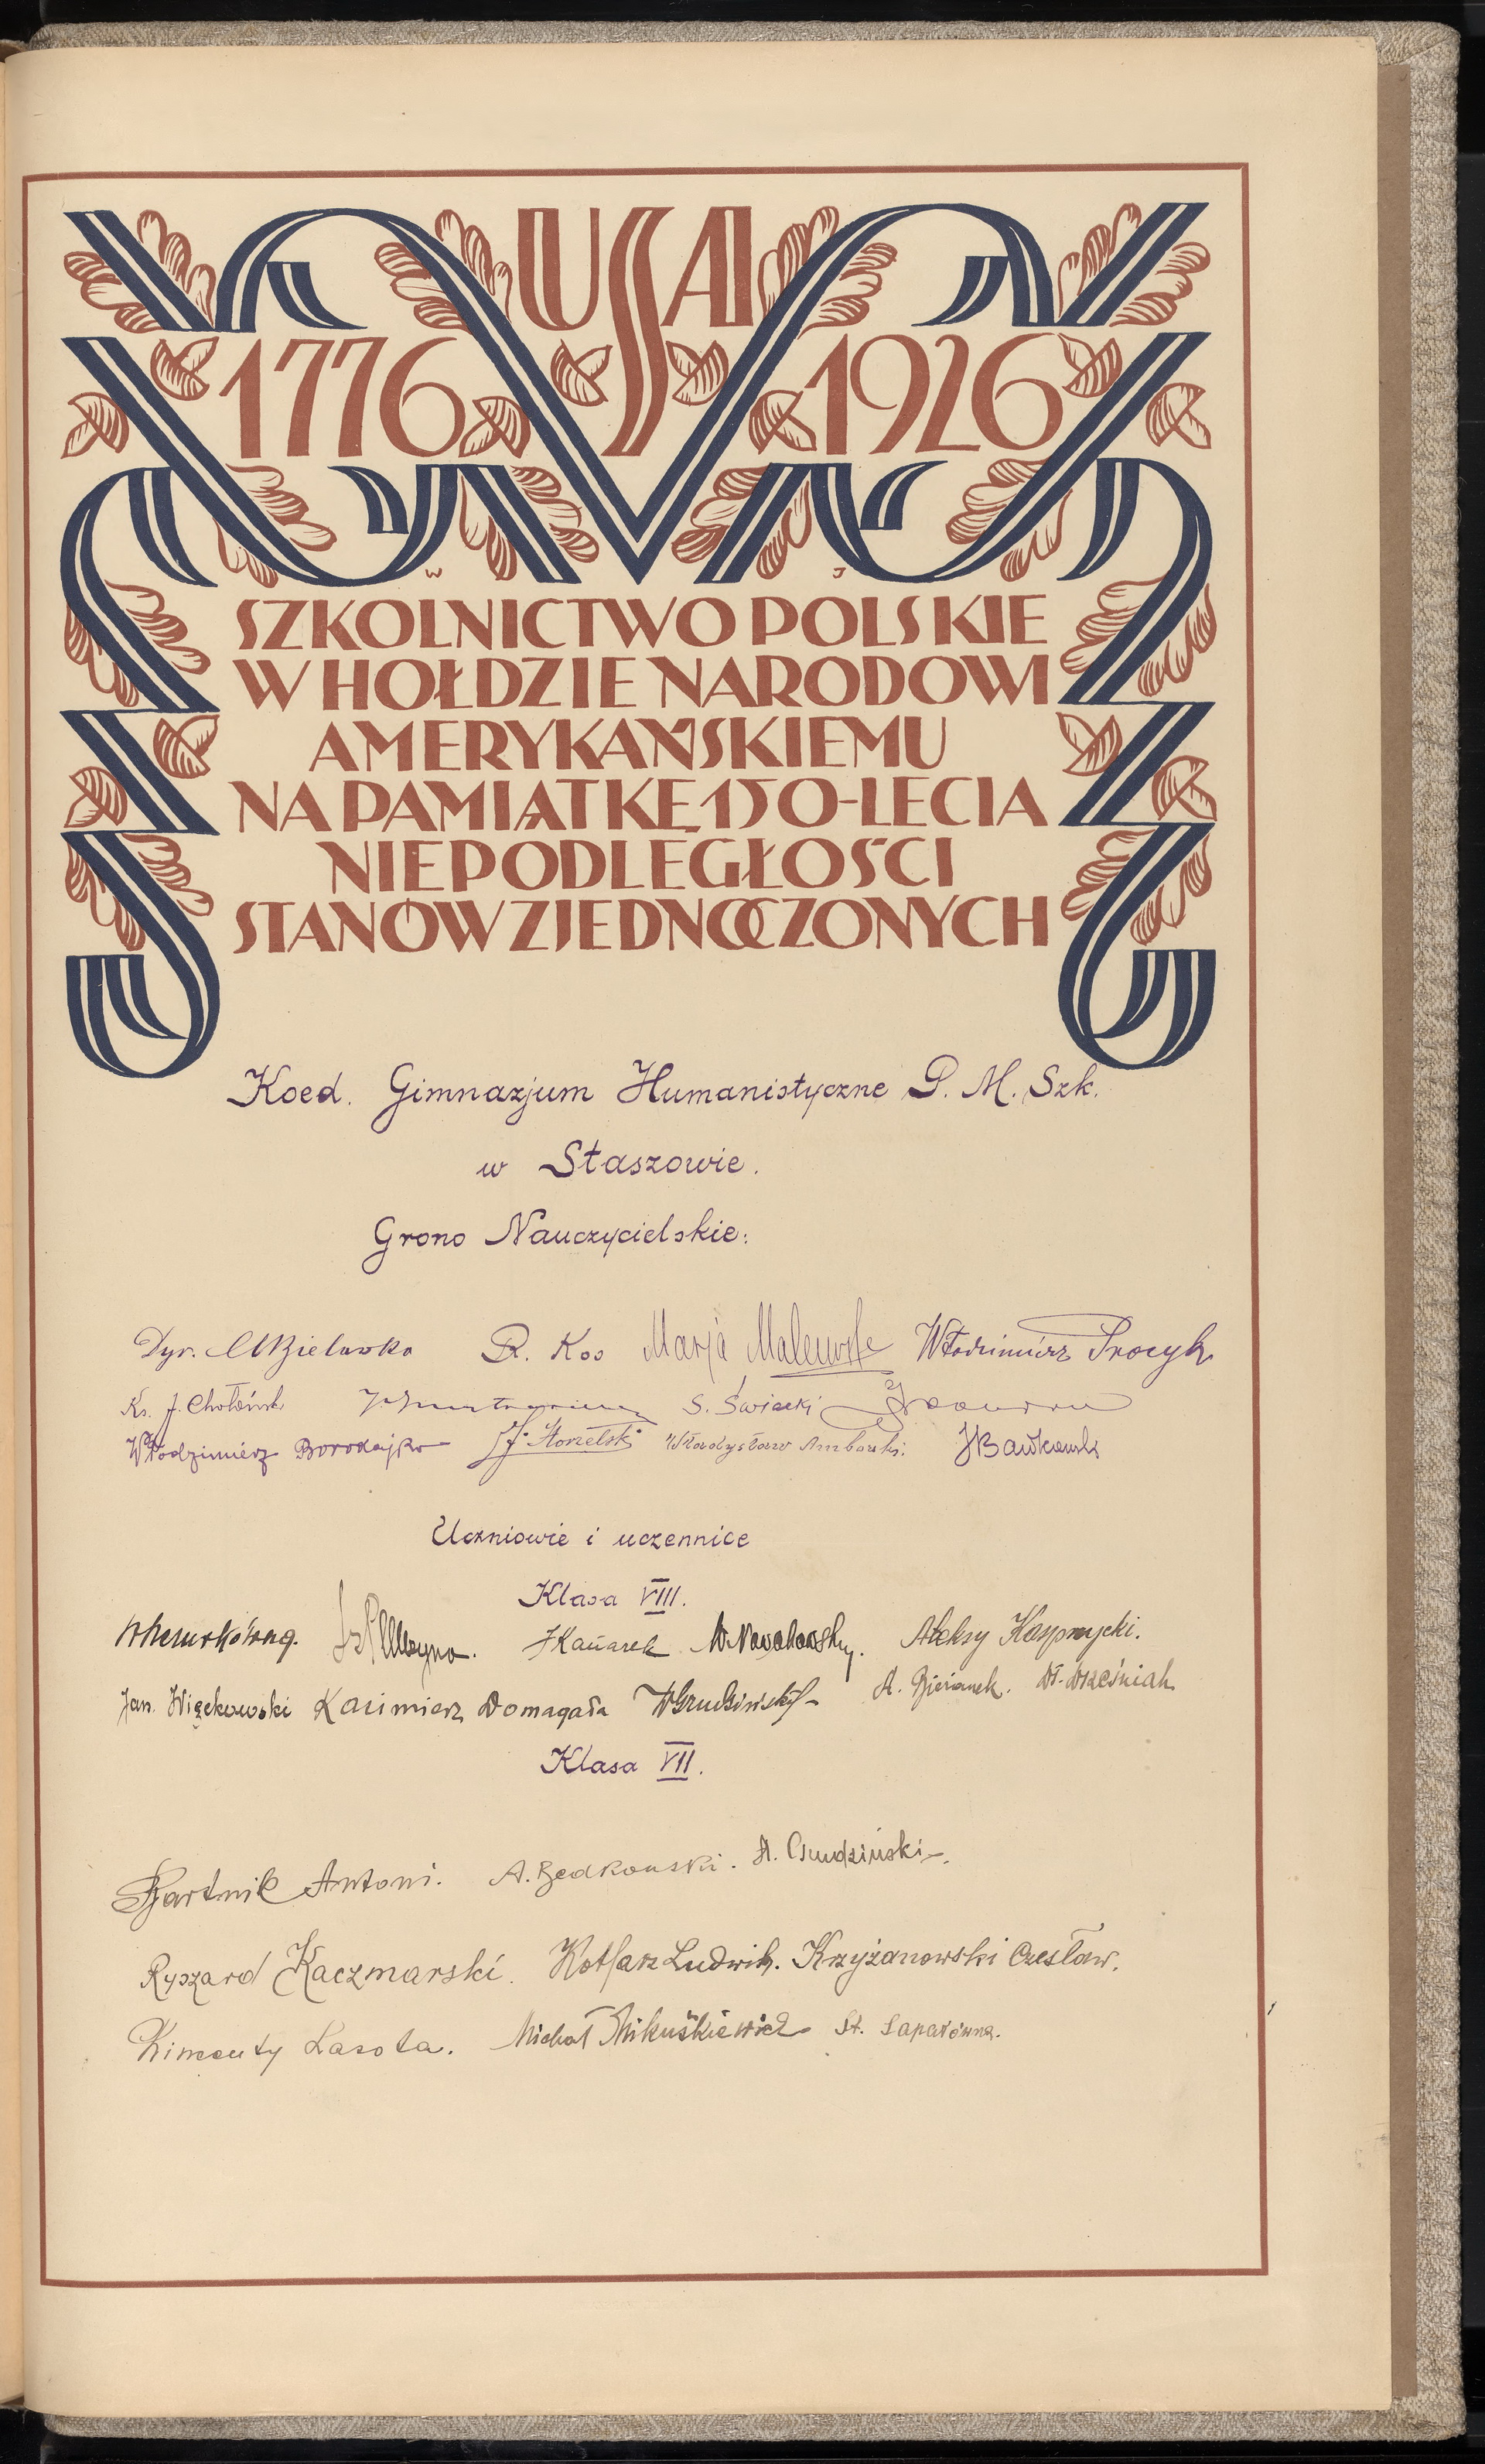 USA
1776 1926
W J
SZKOLNICTWO POLSKIE
W HOŁDZIE NARODOWI
AMERYKAŃSKIEMU
NA PAMIĄTKĘ 150-LECIA
NIEPODLEGŁOŚCI
STANÓW ZJEDNOCZONYCH
Koed. Gimnazjum Humanistyczne P. M. Szk.
w Staszowie.
Grono Nauczycielskie:
Dyr. R. Kos Marja Włodzimierz Procyk
Ks. J. S. Świecki
Włodzimierz Borodajko Władysław
Uczniowie i uczennice
Klasa VIII.
J Kanarek Aleksy Kasprzycki.
Jan. Więckowski Kazimierz Domagała W Grudziński Wł. Wrześniak
Klasa VII.
Bartnik Antoni. A. Będkowski. A. Grudziński.
Ryszard Kaczmarski. Kotlarz Ludwik. Krzyżanowski Czesław.
Lasota. Michał Mikuśkiewicz St. Saparówna.